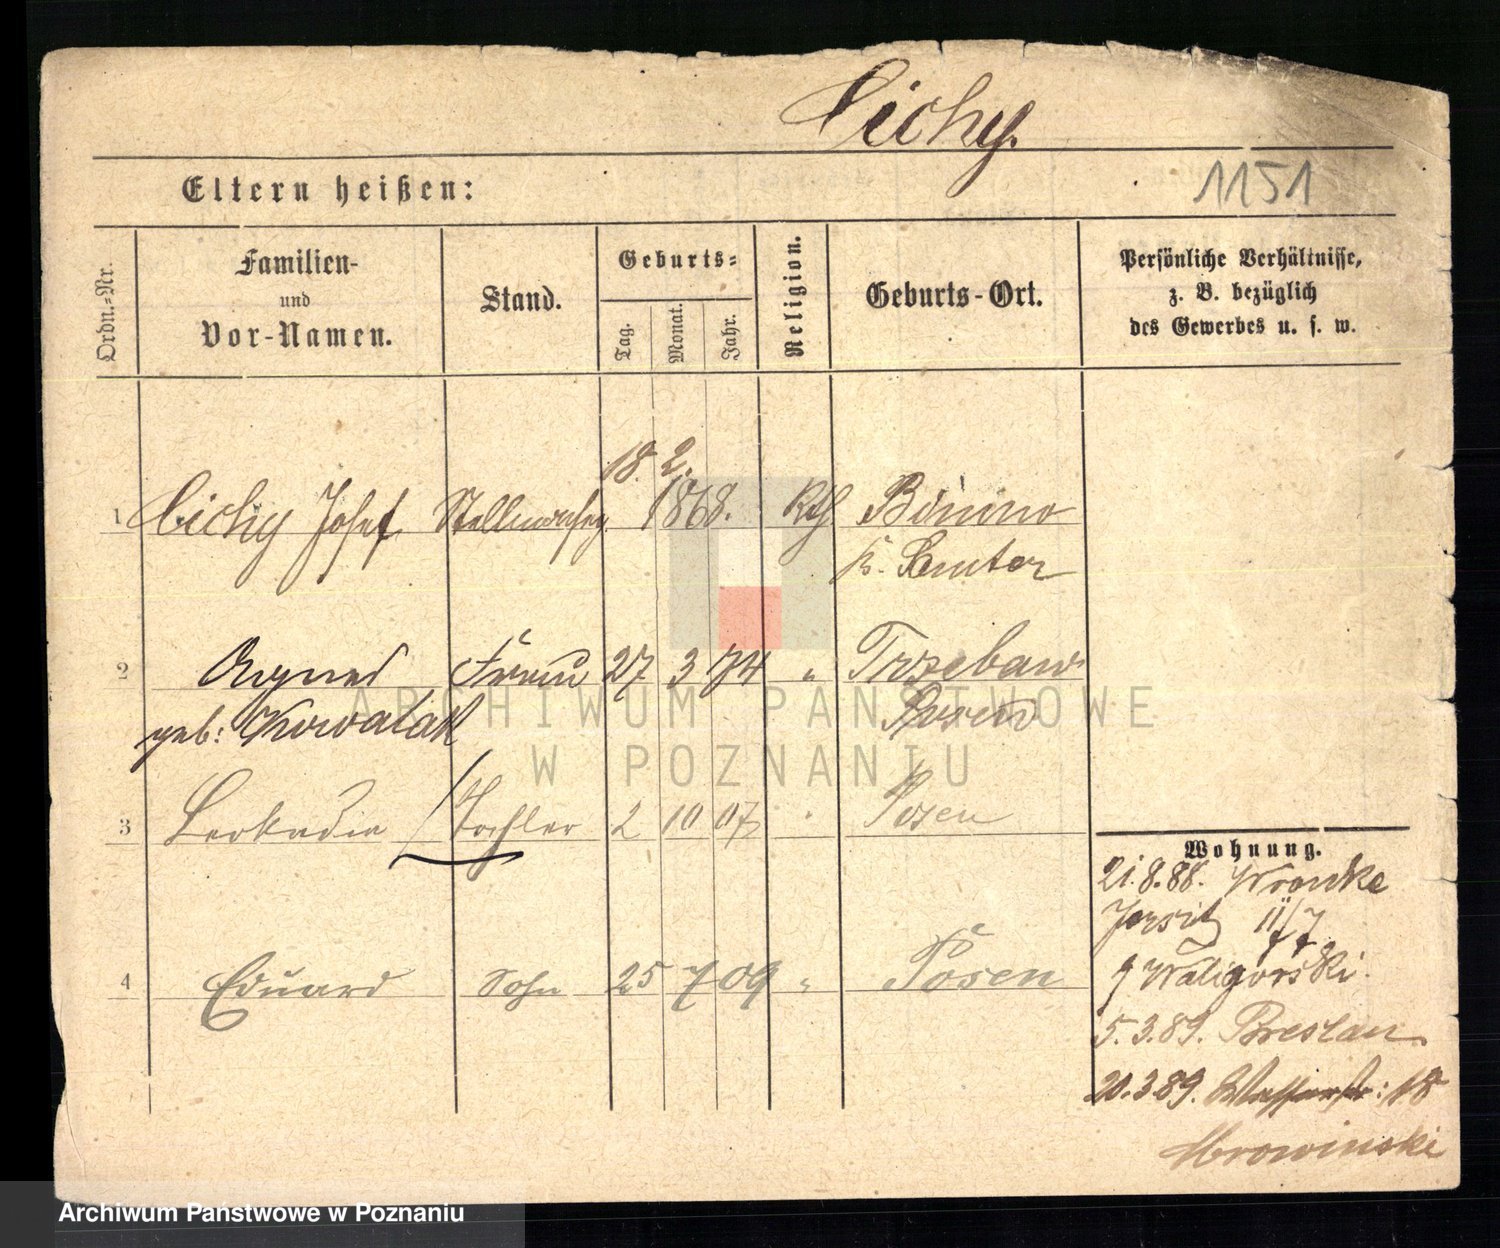 Cichy.
Eltern heißen:
1151
Ordn.-Nr.
Familien-
und
Vor-Namen.
Stand.
Geburts-
Tag.
Monat.
Jahr.
Religion.
Geburts-Ort.
Persönliche Verhältnisse,
z. B. bezüglich
des Gewerbes u. s. w.
18. 2.
1 Cichy Josef Stellmacherg. 1868. Kth
K. Samter
2 Agnes Frau 27 3 74 " Trzebaw
geb: Kowalak Posen
3 Leokadia / Tochter 2 10 07 " Posen
4 Eduard Sohn 25 7 09 " Posen
Wohnung.
21.8.88. Wronke
Jersitz 11/7
Waligorski.
5.3.89. Breslau
20.3.89. Wasserstr: 18
Mrowinski
ARCHIWUM PAŃSTWOWE
W POZNANIU
Archiwum Państwowe w Poznaniu